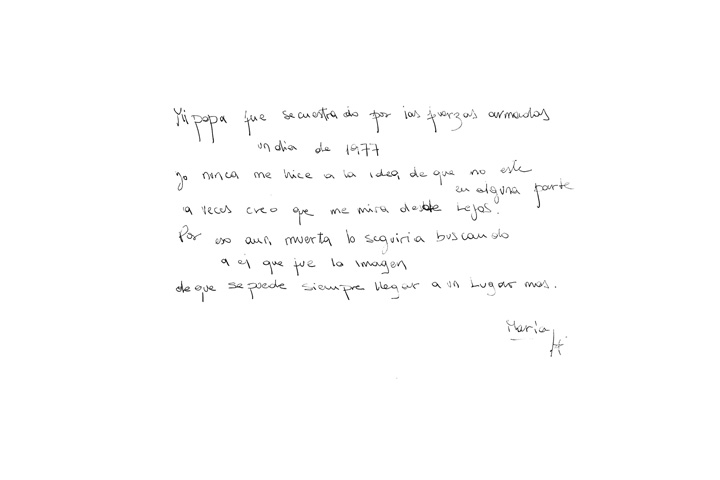 Mi papa fue secuestrado por las fuerzas armadas
un dia de 1977
yo nunca me hice a la idea de que no este
en alguna parte
a veces creo que me mira desde lejos.
Por eso aun muerta lo seguiria buscando
a el que fue la imagen
de que se puede siempre llegar a un lugar mas.
Maria